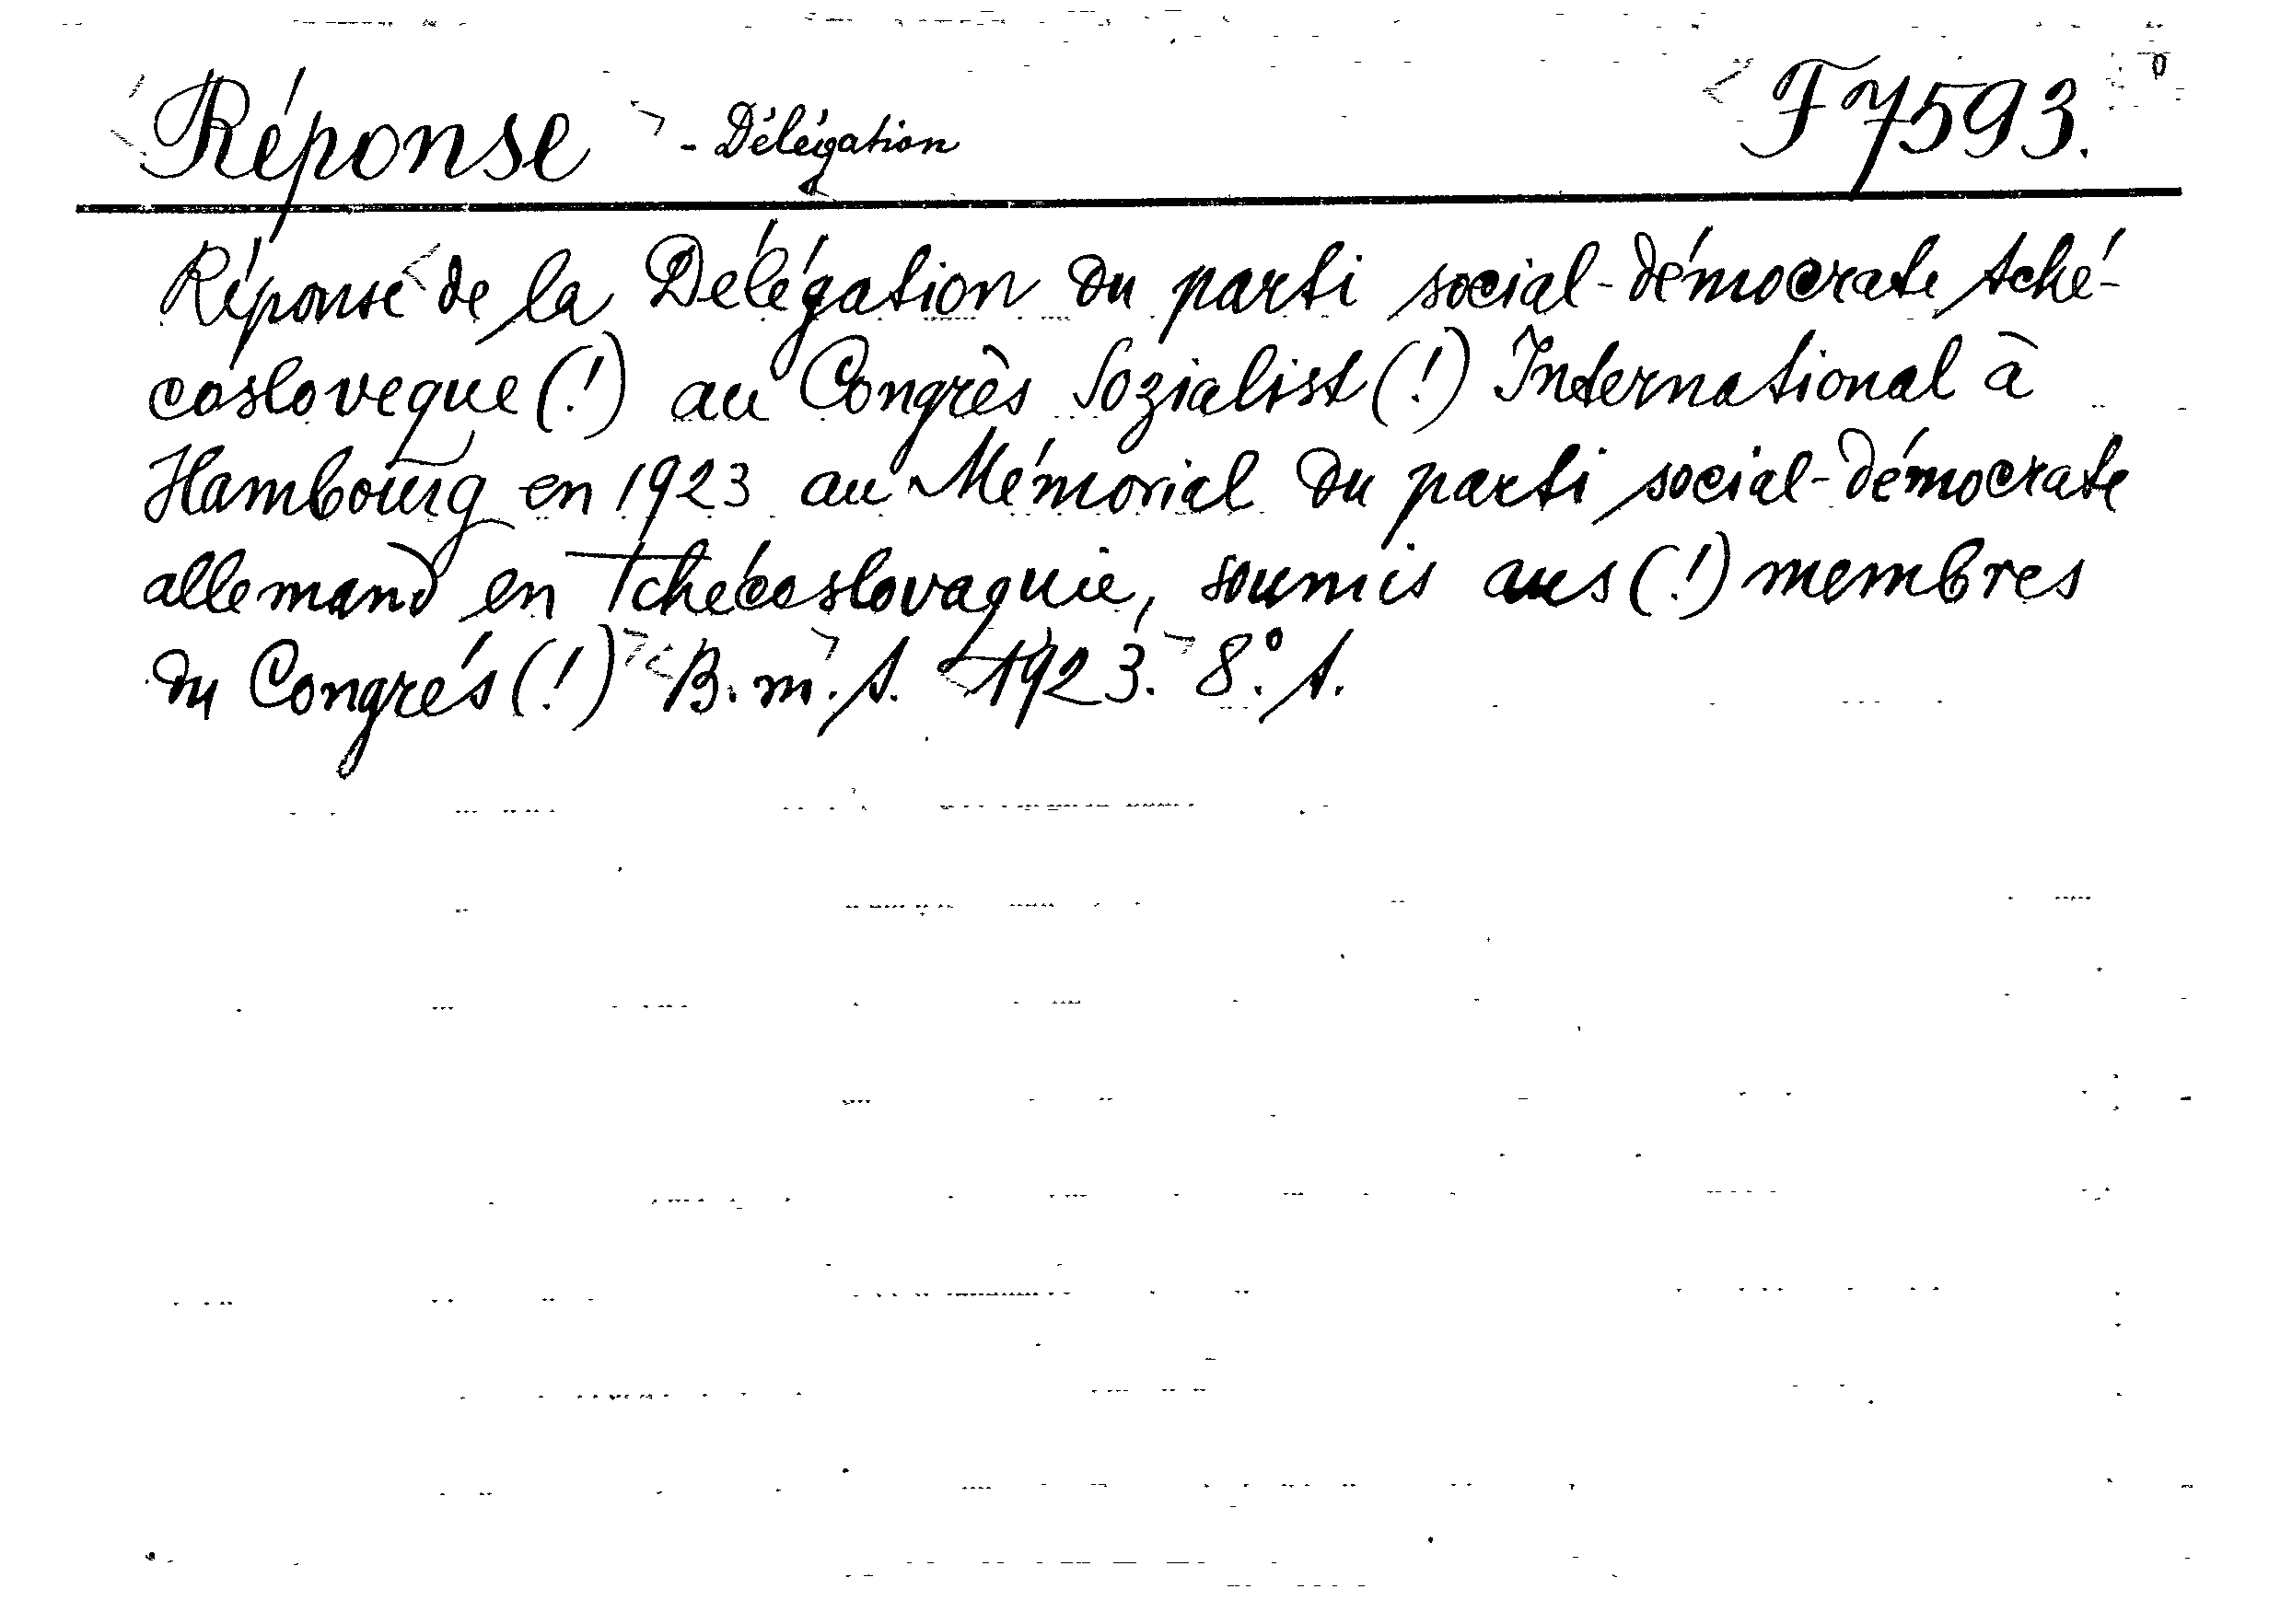 Réponse - Délégation F 7593.
Réponse de la Délégation du parti social-démocrate tché-
cosloveque (!) au Congrès Sozialist (!) International à
Hambourg en 1923 au Mémorial du parti social-démocrate
allemand en Tchécoslovaquie, soumis aus (!) membres
du Congrés (!) B. m. s. 1923. 8°. s.